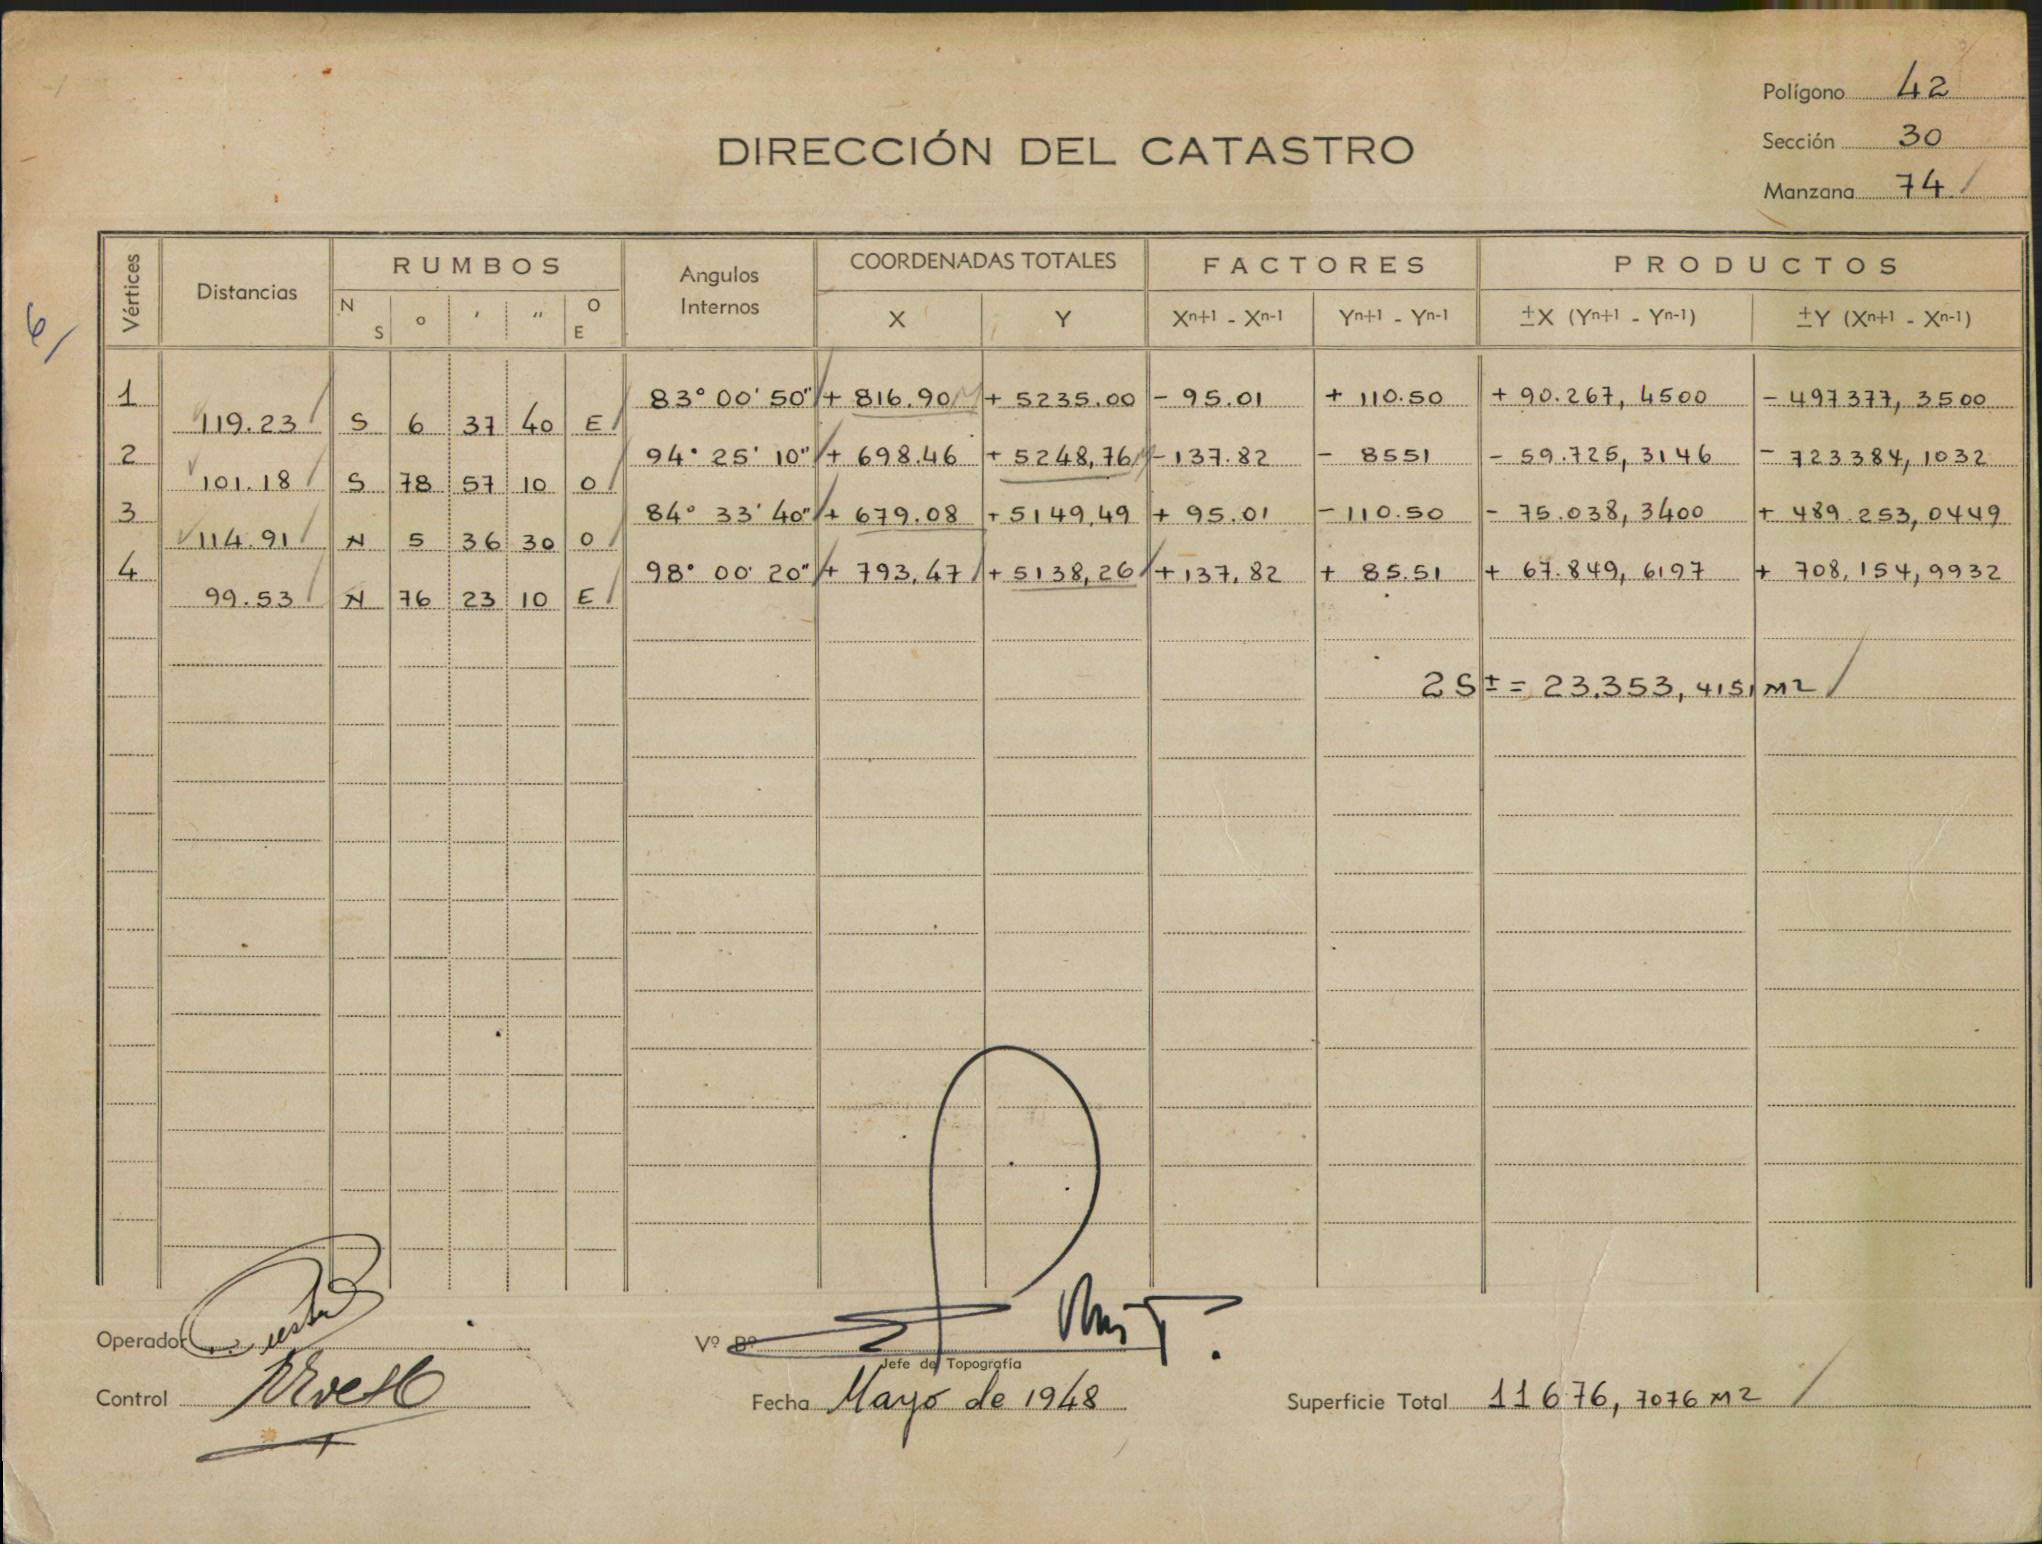 Polígono 42
DIRECCIÓN DEL CATASTRO
Sección 30
Manzana 74
6
Vértices Distancias RUMBOS Angulos Internos COORDENADAS TOTALES FACTORES PRODUCTOS
N S o ' " O E X Y Xn+1 - Xn-1 Yn+1 - Yn-1 ±X (Yn+1 - Yn-1) ±Y (Xn+1 - Xn-1)
1 83° 00' 50" + 816.90 + 5235.00 - 95.01 + 110.50 + 90.267, 4500 - 497377, 3500
119.23 S 6 37 40 E
2 94° 25' 10" + 698.46 + 5248,76 - 137.82 - 8551 - 59.725, 3146 - 723384, 1032
101.18 S 78 57 10 O
3 84° 33' 40" + 679.08 + 5149,49 + 95.01 - 110.50 - 75.038, 3400 + 489.253, 0449
114.91 N 5 36 30 O
4 98° 00' 20" + 793,47 + 5138,26 + 137,82 + 85.51 + 67.849, 6197 + 708,154,9932
99.53 N 76 23 10 E
2S± = 23.353, 4151 M2
Operador
Vº Bº
Jefe de Topografía
Control
Fecha Mayo de 1948
Superficie Total 11676, 7076 M2